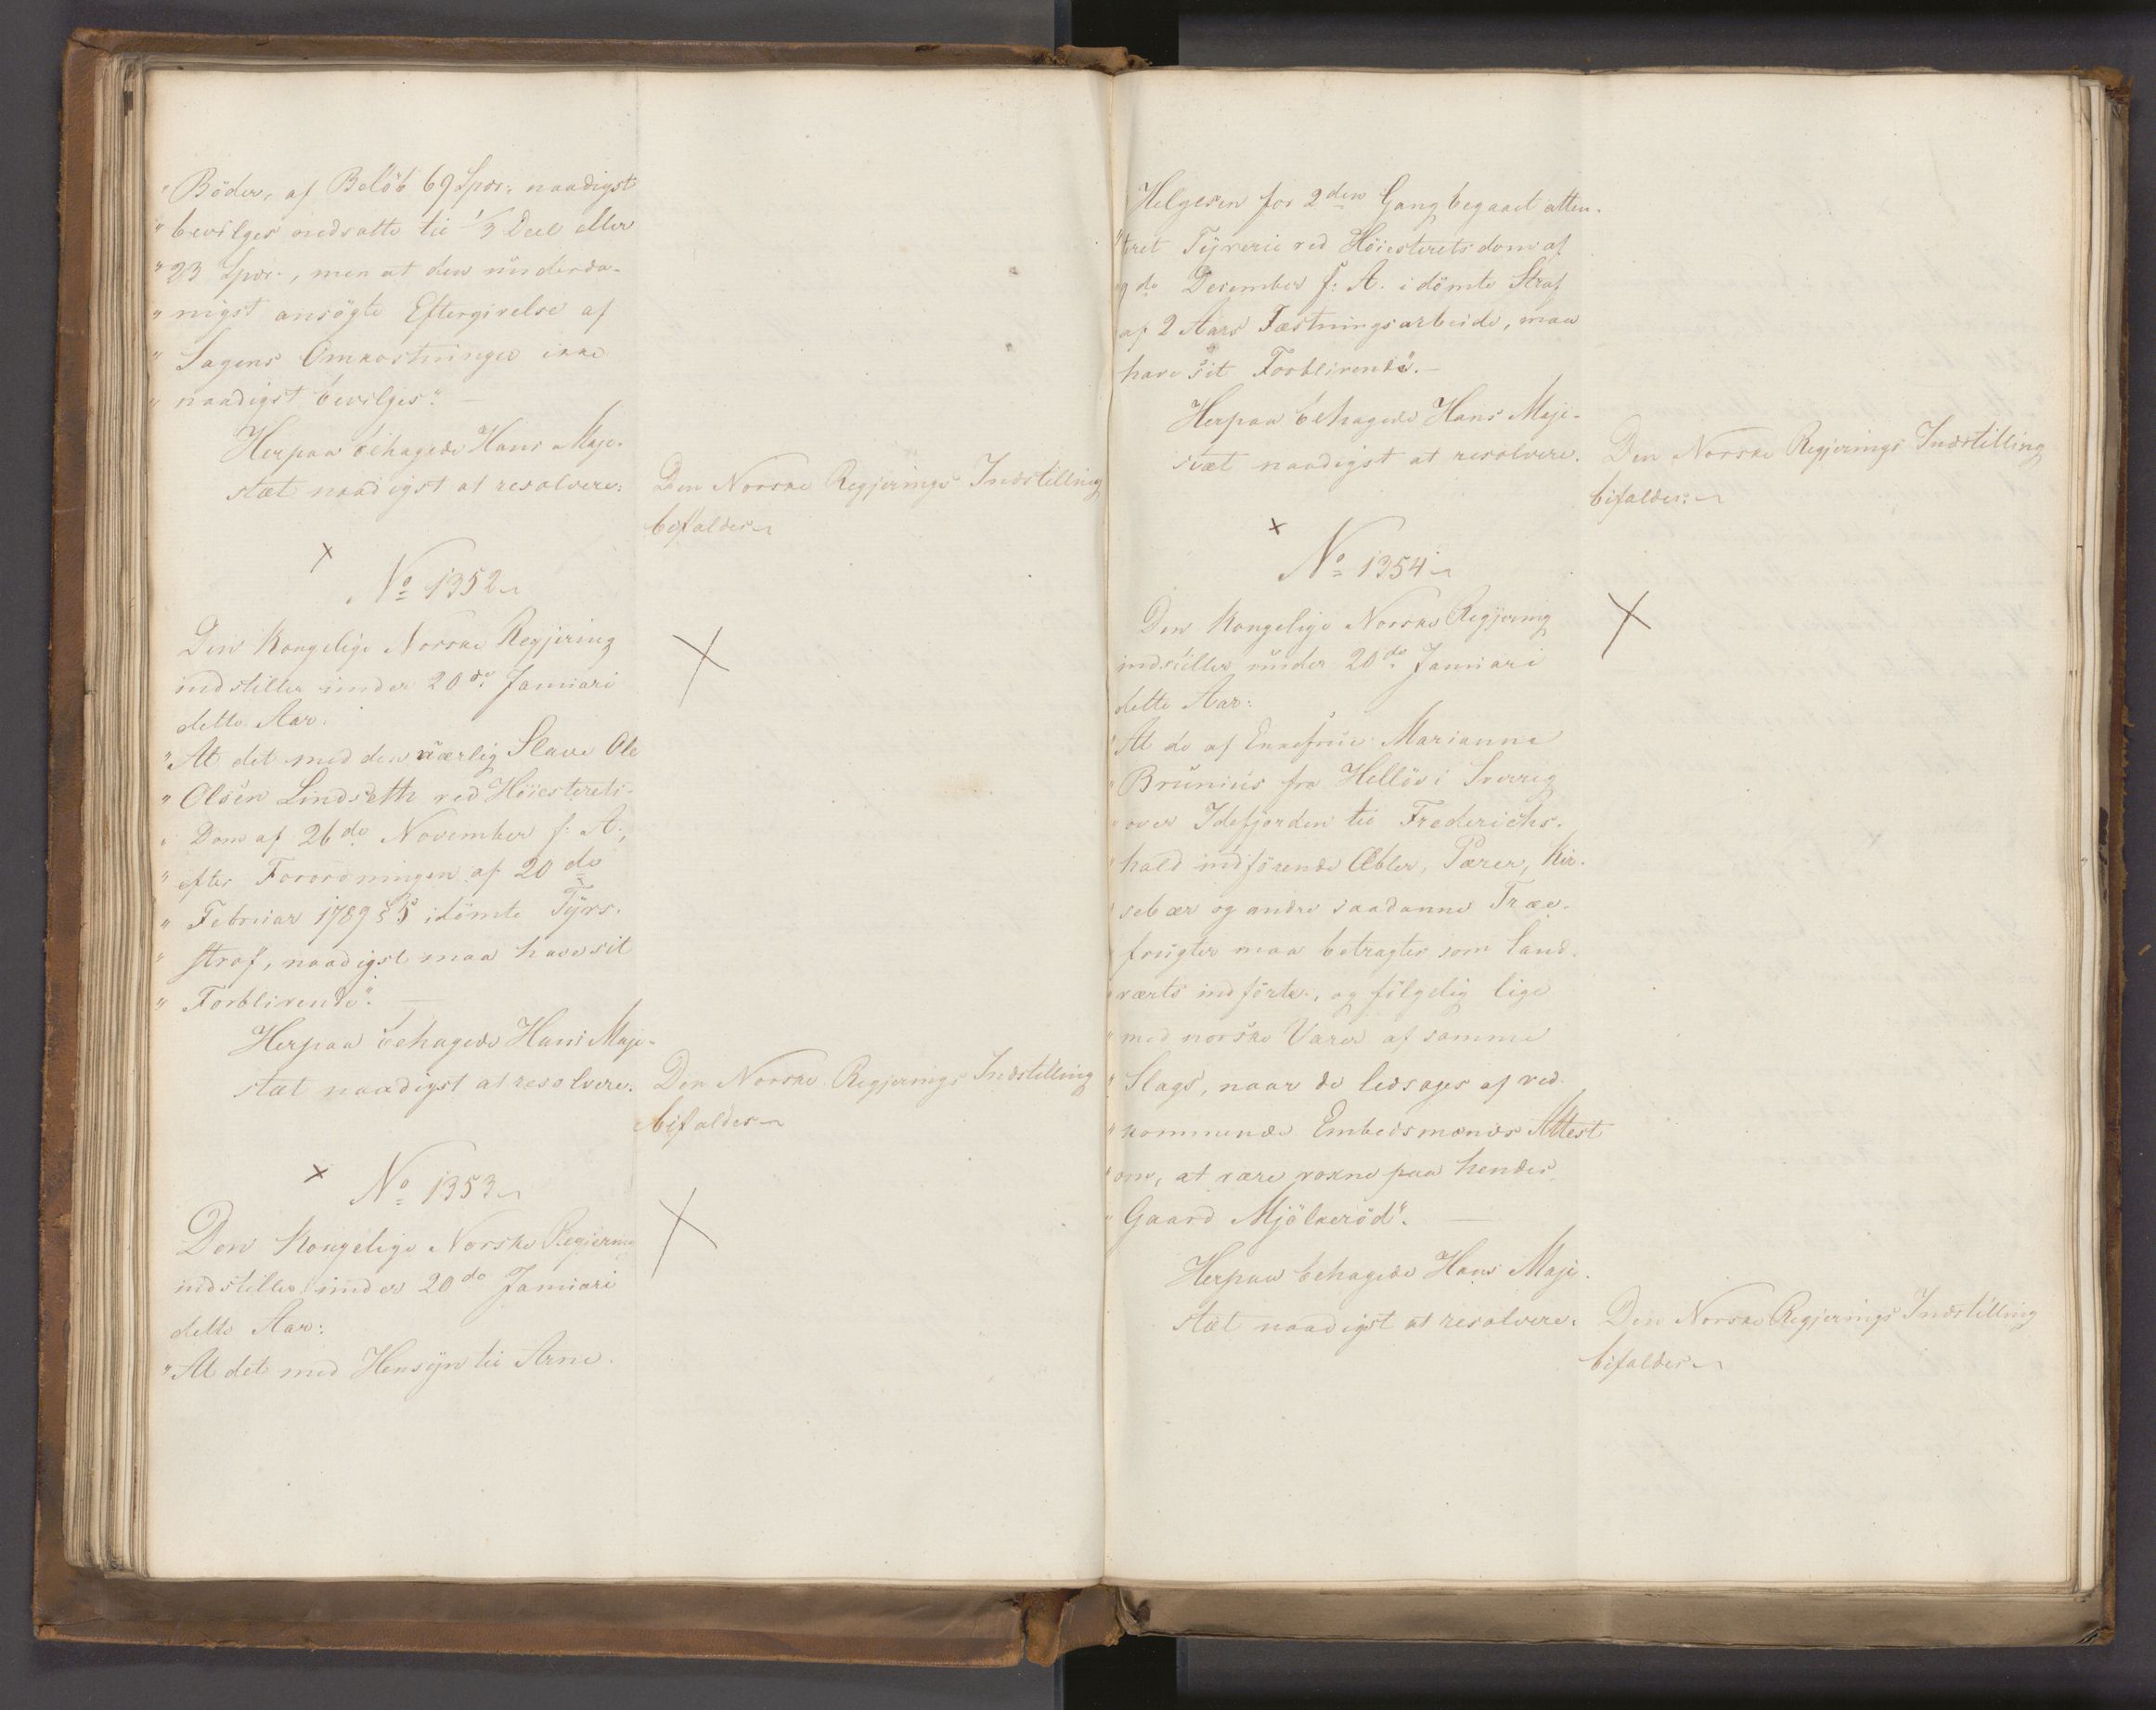 "Böder, af Belöb 69 Spdr: naadigst
"bevilges nedsatte til 1/3 Deel eller
"23 Spdr:, men at den underda-
"nigst ansögte Eftergivelse af
"Sagens Omkostninger ikke
"naadigst bevilges". —
Herpaa behagede Hans Maje-
stæt naadigst at resolvere:
Den Norske Regjerings Indstilling
bifaldes
x
No 1352
Den Kongelige Norske Regjering
indstiller under 20de Januari
dette Aar:
"At det med den uærlig Slave Ole
"Olsen Lindseth ved Höiesterets-
"Dom af 26de November f: A:,
"efter Forordningen af 20de
"Februar 1789 § 5 idömte Tyvs-
"straf, naadigst maa have sit
"Forblivende". —
Herpaa behagede Hans Maje-
stæt naadigst at resolvere:
Den Norske Regjerings Indstilling
bifaldes
x
No 1353
Den Kongelige Norske Regjering
indstiller under 20de Januari
dette Aar:
"At det med Hensyn til Arne
Helgesen for 2den Gang begaaet atten-
"teret Tyverie ved Höiesteretsdom af
9de December f: A. idömte Straf
af 2 Aars Fæstningsarbeide, maa
have sit Forblivende". —
Herpaa behagede Hans Maje-
stæt naadigst at resolvere:
Den Norske Regjerings Indstilling
bifaldes:
x
No 1354
Den Kongelige Norske Regjering
indstiller under 20de Januari
dette Aar:
"At de af Enkefrue Marianne
"Brunius fra Hellöv i Sverrig
"over Idefjorden til Frederichs-
"hald indförende Æbler, Pærer, Kir-
"sebær og andre saadanne Træe-
"frugter maa betragtes som land-
"værts indförte, og fölgelig lige
"med norske Varer af samme
"Slags, naar de ledsages af ved-
"kommende Embedsmænds Attest
"om, at være voxne paa hendes
"Gaard Mjölkeröd". —
Herpaa behagede Hans Maje-
stæt naadigst at resolvere:
Den Norske Regjerings Indstilling
bifaldes